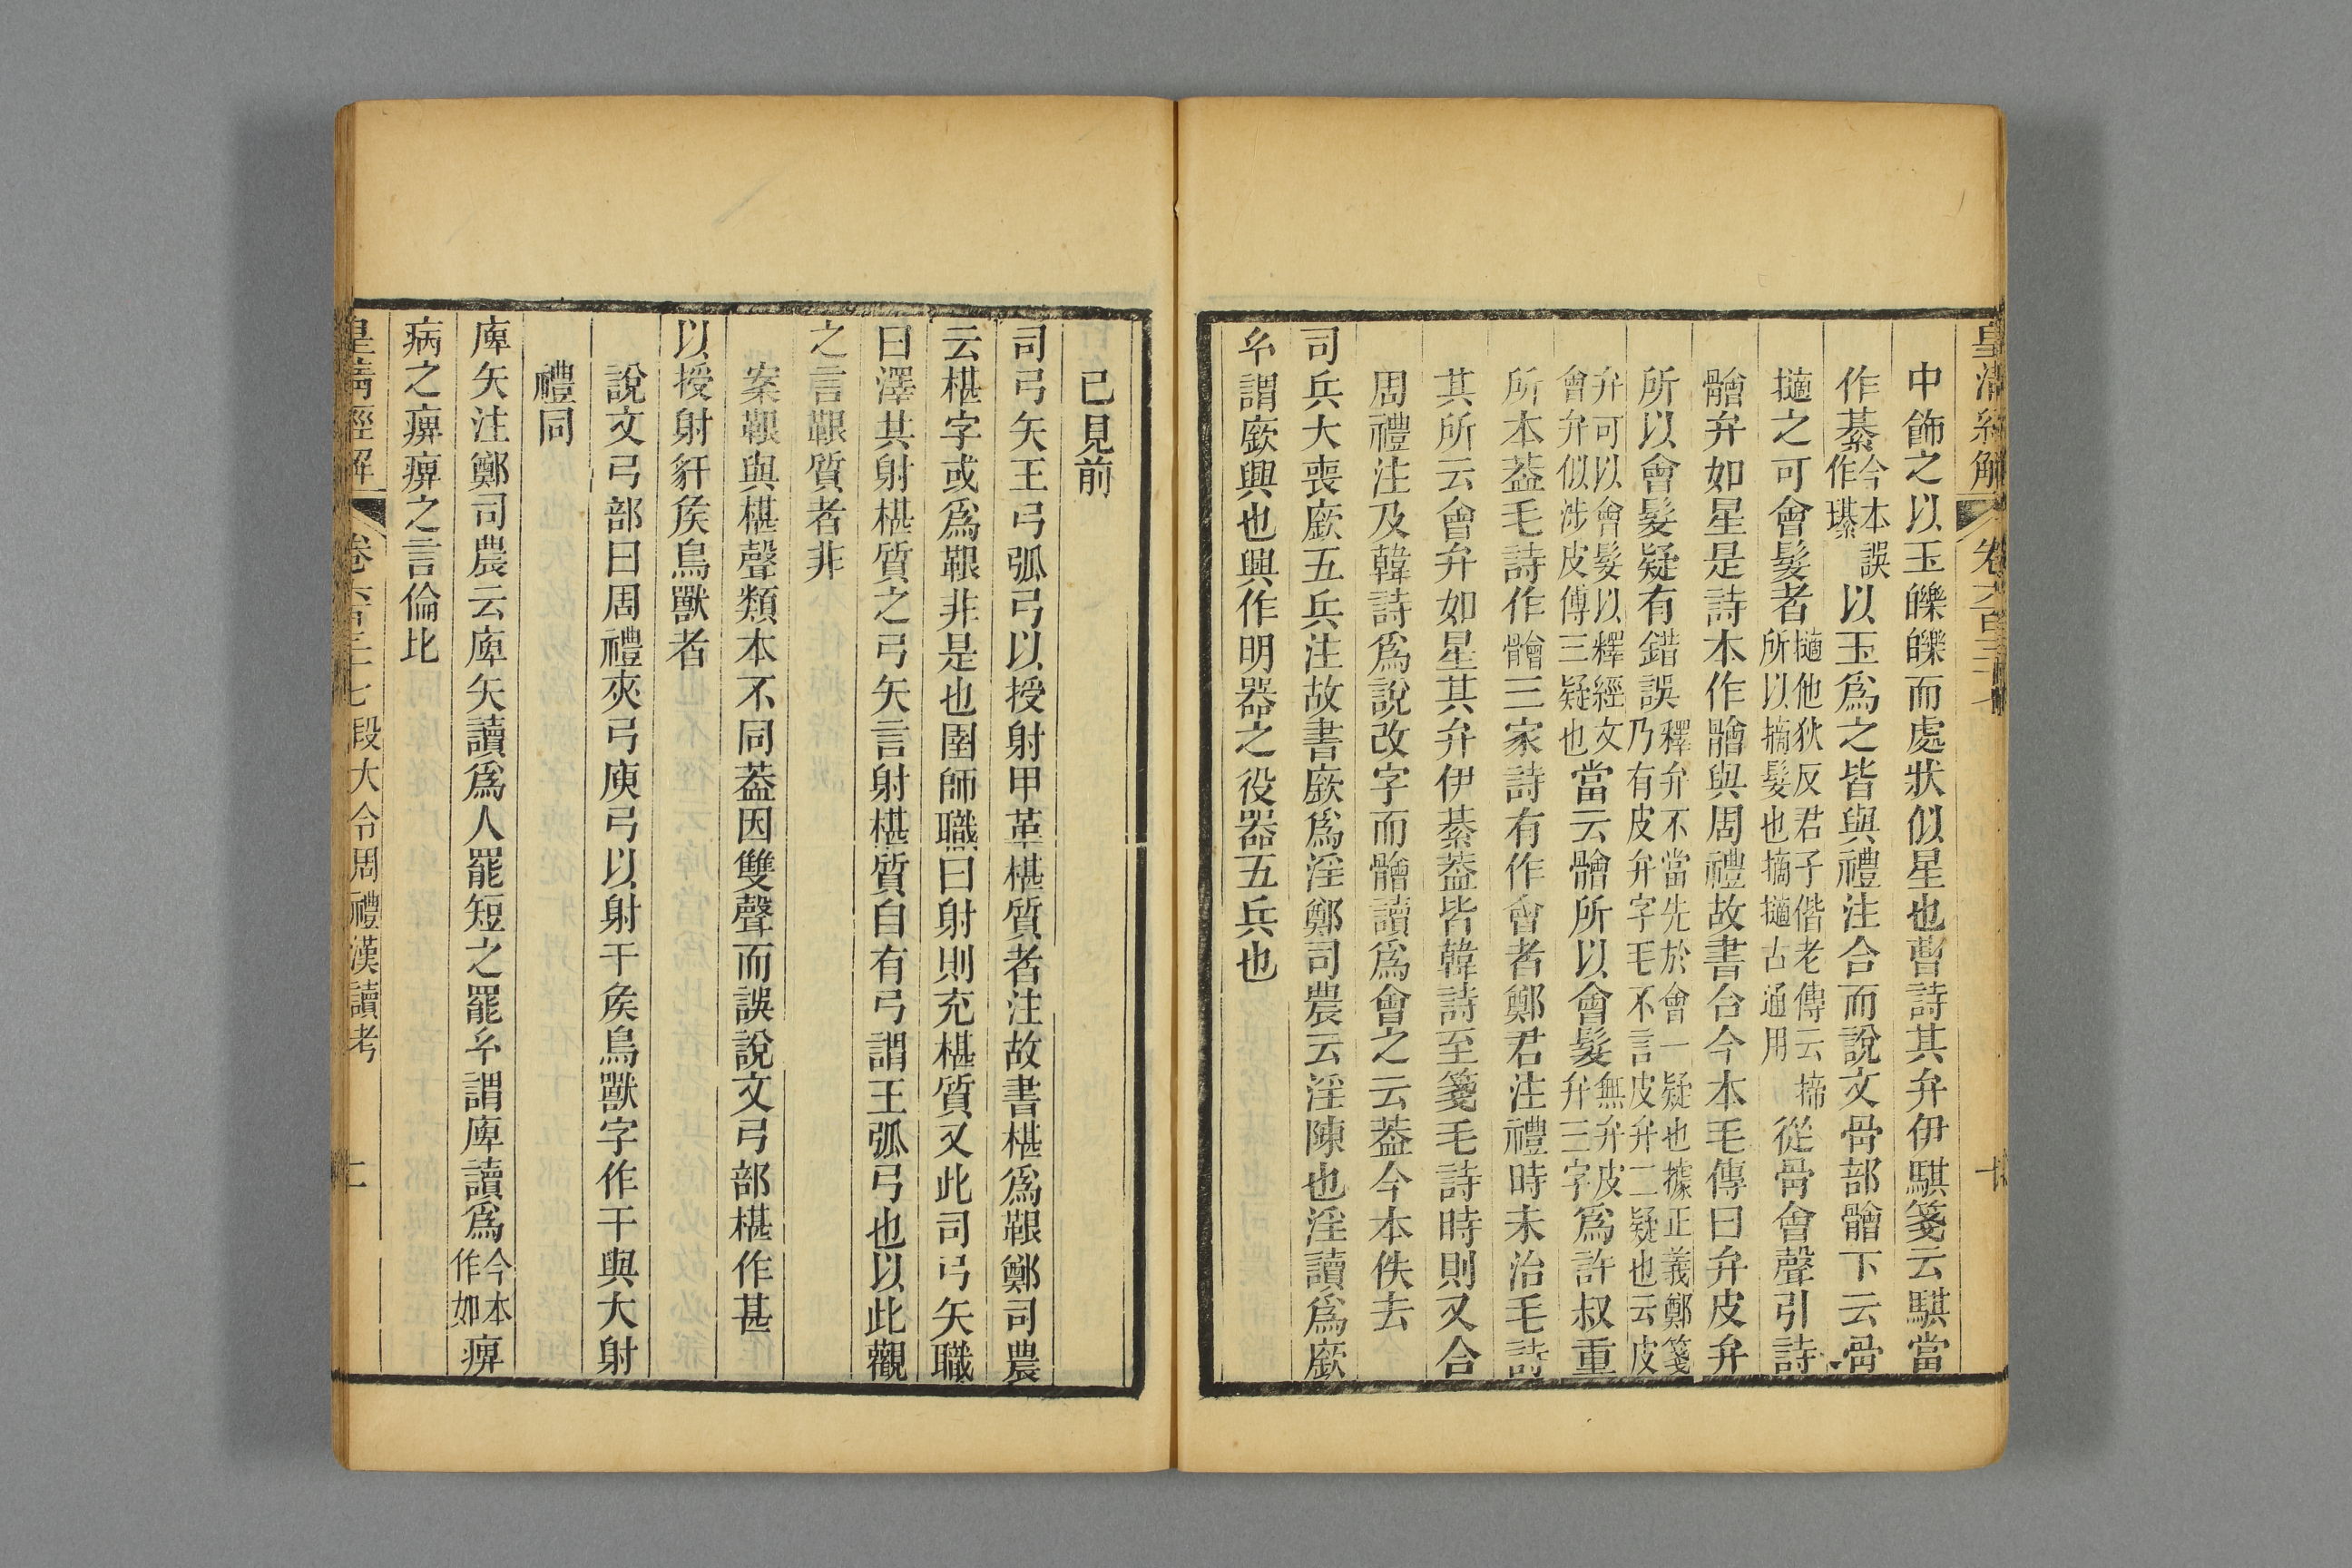 皇清經解
卷六百三十七
中飾之以玉皪皪而處狀似星也曹詩其弁伊騏箋云騏當
作綦今本誤作璂以玉爲之皆與禮注合而說文骨部䯤下云骨
擿之可會髮者擿他狄反君子偕老傳云揥所以摘髮也摘擿古通用從骨會聲引詩
䯤弁如星是詩本作䯤與周禮故書合今本毛傳曰弁皮弁
所以會髮疑有錯誤釋弁不當先於會一疑也據正義鄭箋乃有皮弁字毛不言皮弁二疑也云皮
弁可以會髮以釋經文會弁似涉皮傅三疑也當云䯤所以會髮無弁皮弁三字爲許叔重
所本葢毛詩作䯤三家詩有作會者鄭君注禮時未治毛詩
其所云會弁如星其弁伊綦葢皆韓詩至箋毛詩時則又合
周禮注及韓詩爲說改字而䯤讀爲會之云葢今本佚去
司兵大喪廞五兵注故書廞爲淫鄭司農云淫陳也淫讀爲廞
𤣥謂廞興也興作明器之役器五兵也
已見前
司弓矢王弓弧弓以授射甲革椹質者注故書椹爲鞎鄭司農
云椹字或爲鞎非是也圉師職曰射則充椹質又此司弓矢職
曰澤共射椹質之弓矢言射椹質自有弓謂王弧弓也以此觀
之言鞎質者非
案鞎與椹聲類本不同葢因雙聲而誤說文弓部椹作甚
以授射豻矦鳥獸者
說文弓部曰周禮夾弓庾弓以射干矦鳥獸字作干與大射
禮同
庳矢注鄭司農云庳矢讀爲人罷短之罷𤣥謂庳讀爲今本作如痹
病之痹痹之言倫比
皇清經解
卷六百三十七 段大令周禮漢讀考